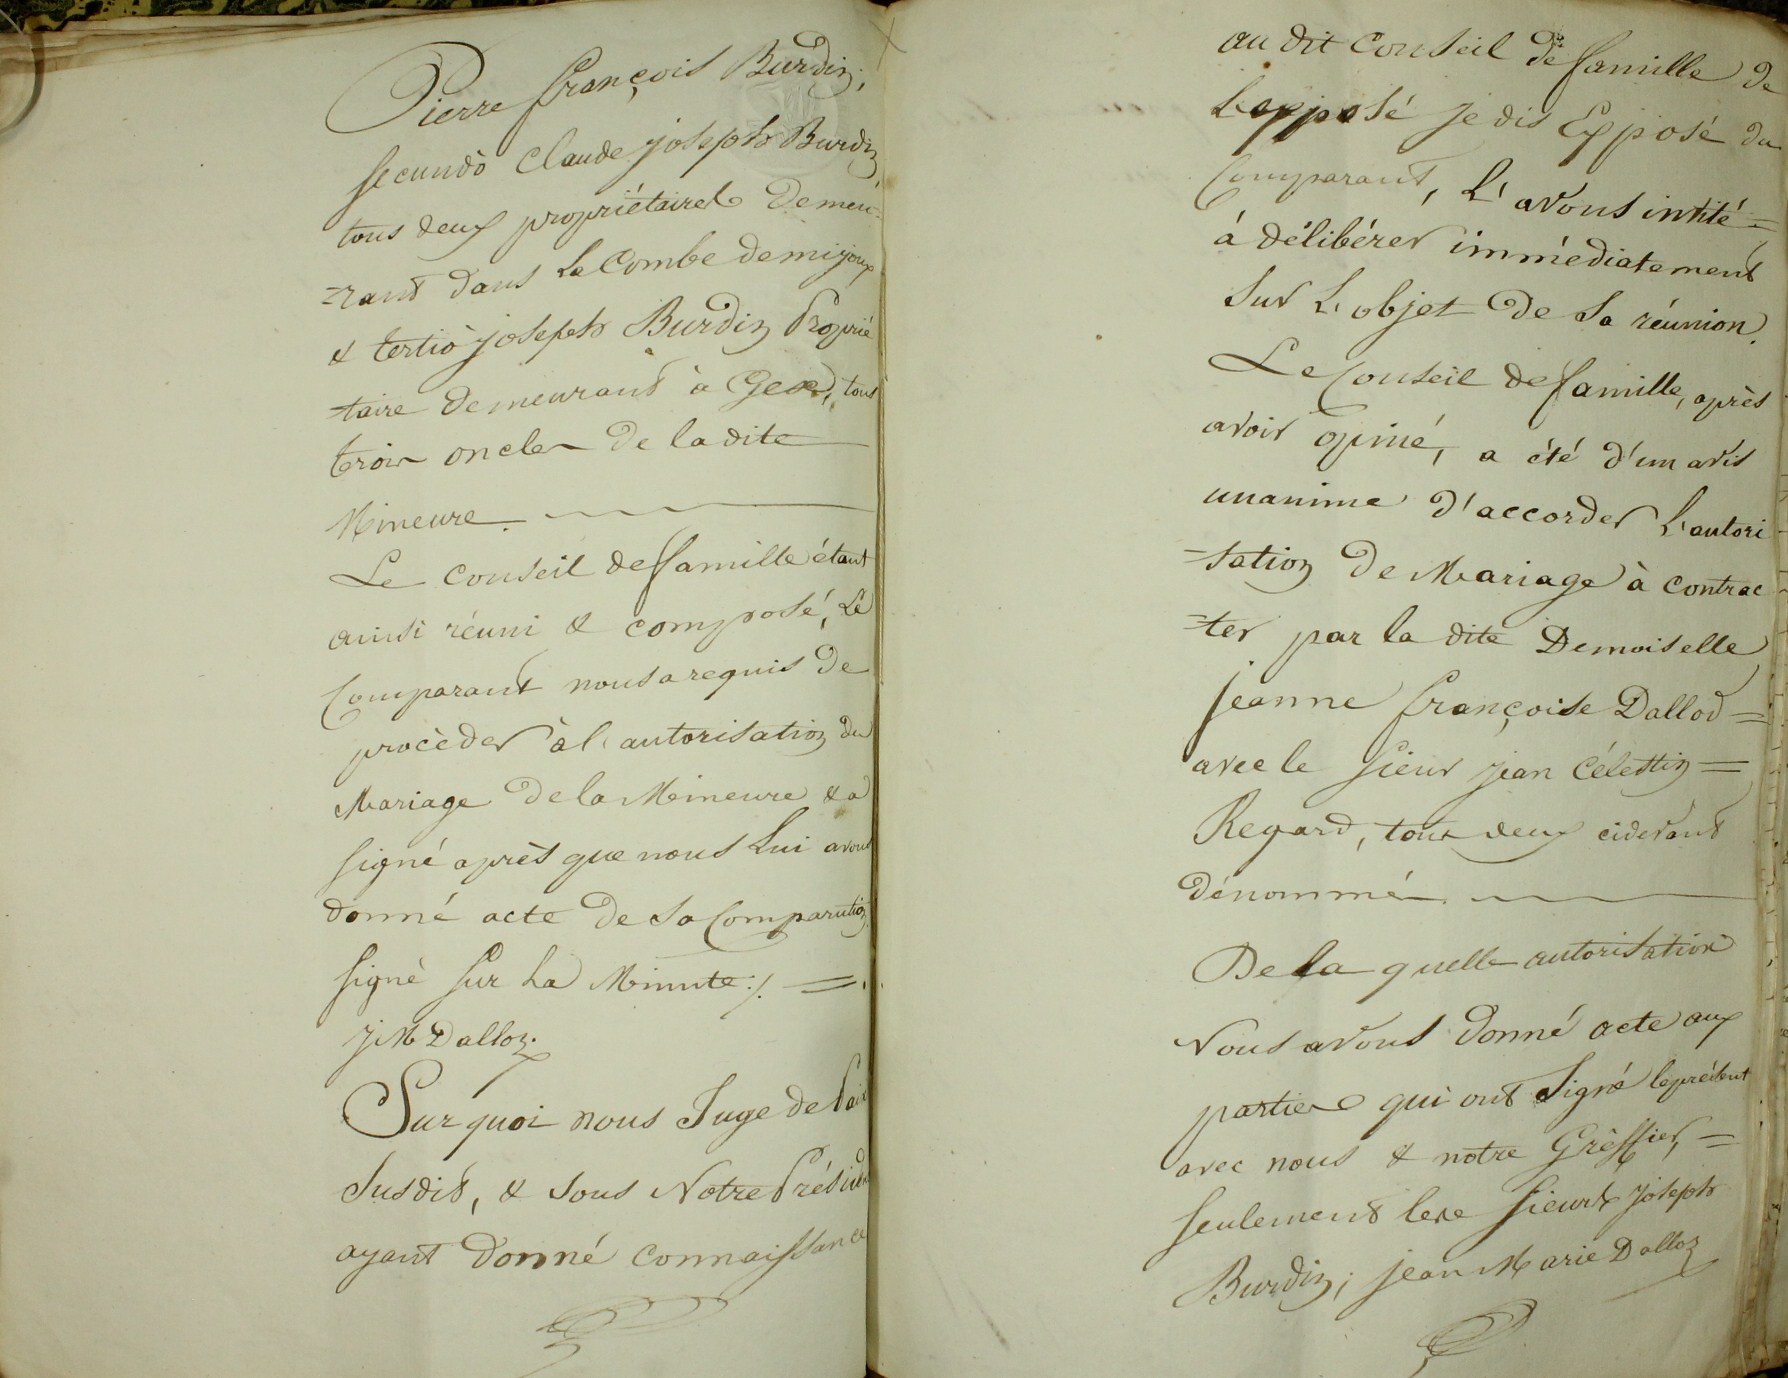 Pierre françois Burdin,
secundò Claude joseph Burdin,
tous deux propriétaires demeu-
=rant dans La Combe de mijoux
& tertiò joseph Burdin Proprié
-taire demeurant à Gex, tous
trois oncles de la dite
Mineure.
Le Conseil de famille étant
ainsi réuni & composé, Le
Comparant nous a requis de
procèder à l'autorisation du
Mariage de la Mineure & a
signé après que nous Lui avons
donné acte de sa Comparution
signé sur La Minute ./. =
J M Dalloz.
Sur quoi nous Juge de Paix
susdit, & sous Notre Présiden
ayant donné connaissance
au dit Conseil de famille de
L'exposé je dis Exposé du
Comparant, L'avons invité =
à délibérer immédiatement
sur L'objet de sa réunion.
Le Conseil de famille, après
avoir opiné, a été d'un avis
unanime d'accorder L'autori
-sation de Mariage à contrac
=ter par la dite Demoiselle
jeanne françoise Dallod =
avec le sieur jean Célestin =
Regard, tous deux cidevant
dénommés
De la quelle autorisation
Nous avons donné acte aux
parties qui ont signé le présent
avec nous & notre Grèffier, =
seulement les sieurs joseph
Burdin, jean Marie Dalloz